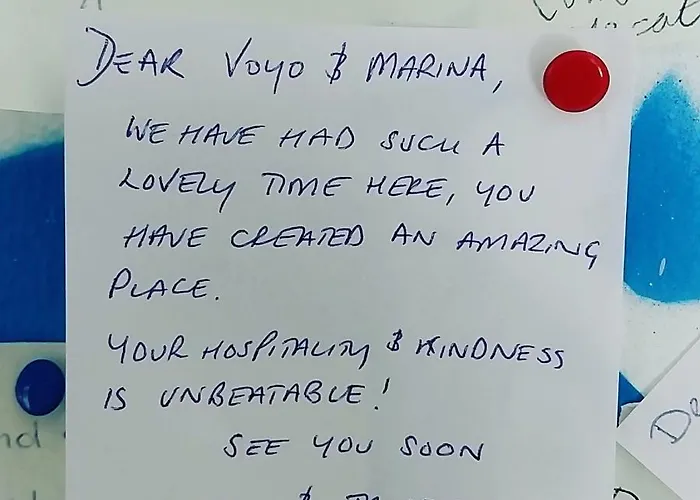 DEAR VOYO & MARINA,
WE HAVE HAD SUCH A
LOVELY TIME HERE, YOU
HAVE CREATED AN AMAZING
PLACE.
YOUR HOSPITALITY & KINDNESS
IS UNBEATABLE!
SEE YOU SOON